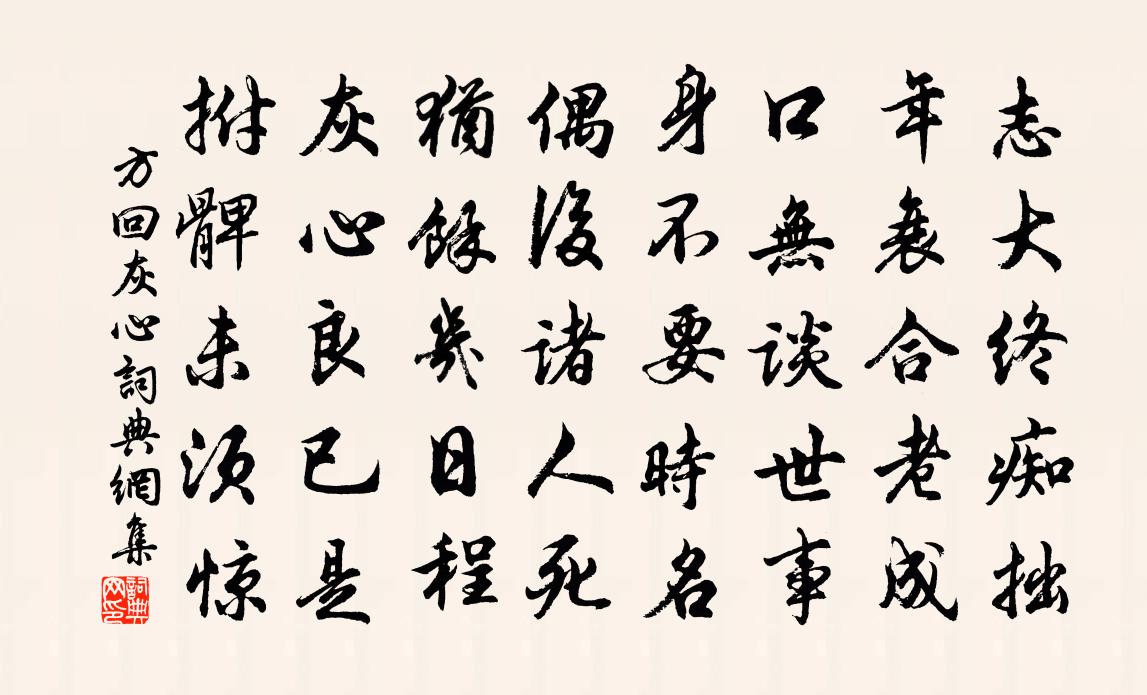 志大终痴拙
年衰合老成
口無談世事
身不要時名
偶後諸人死
猶餘幾日程
灰心良已是
拊髀未須惊
方回灰心詞典網集
詞典网印